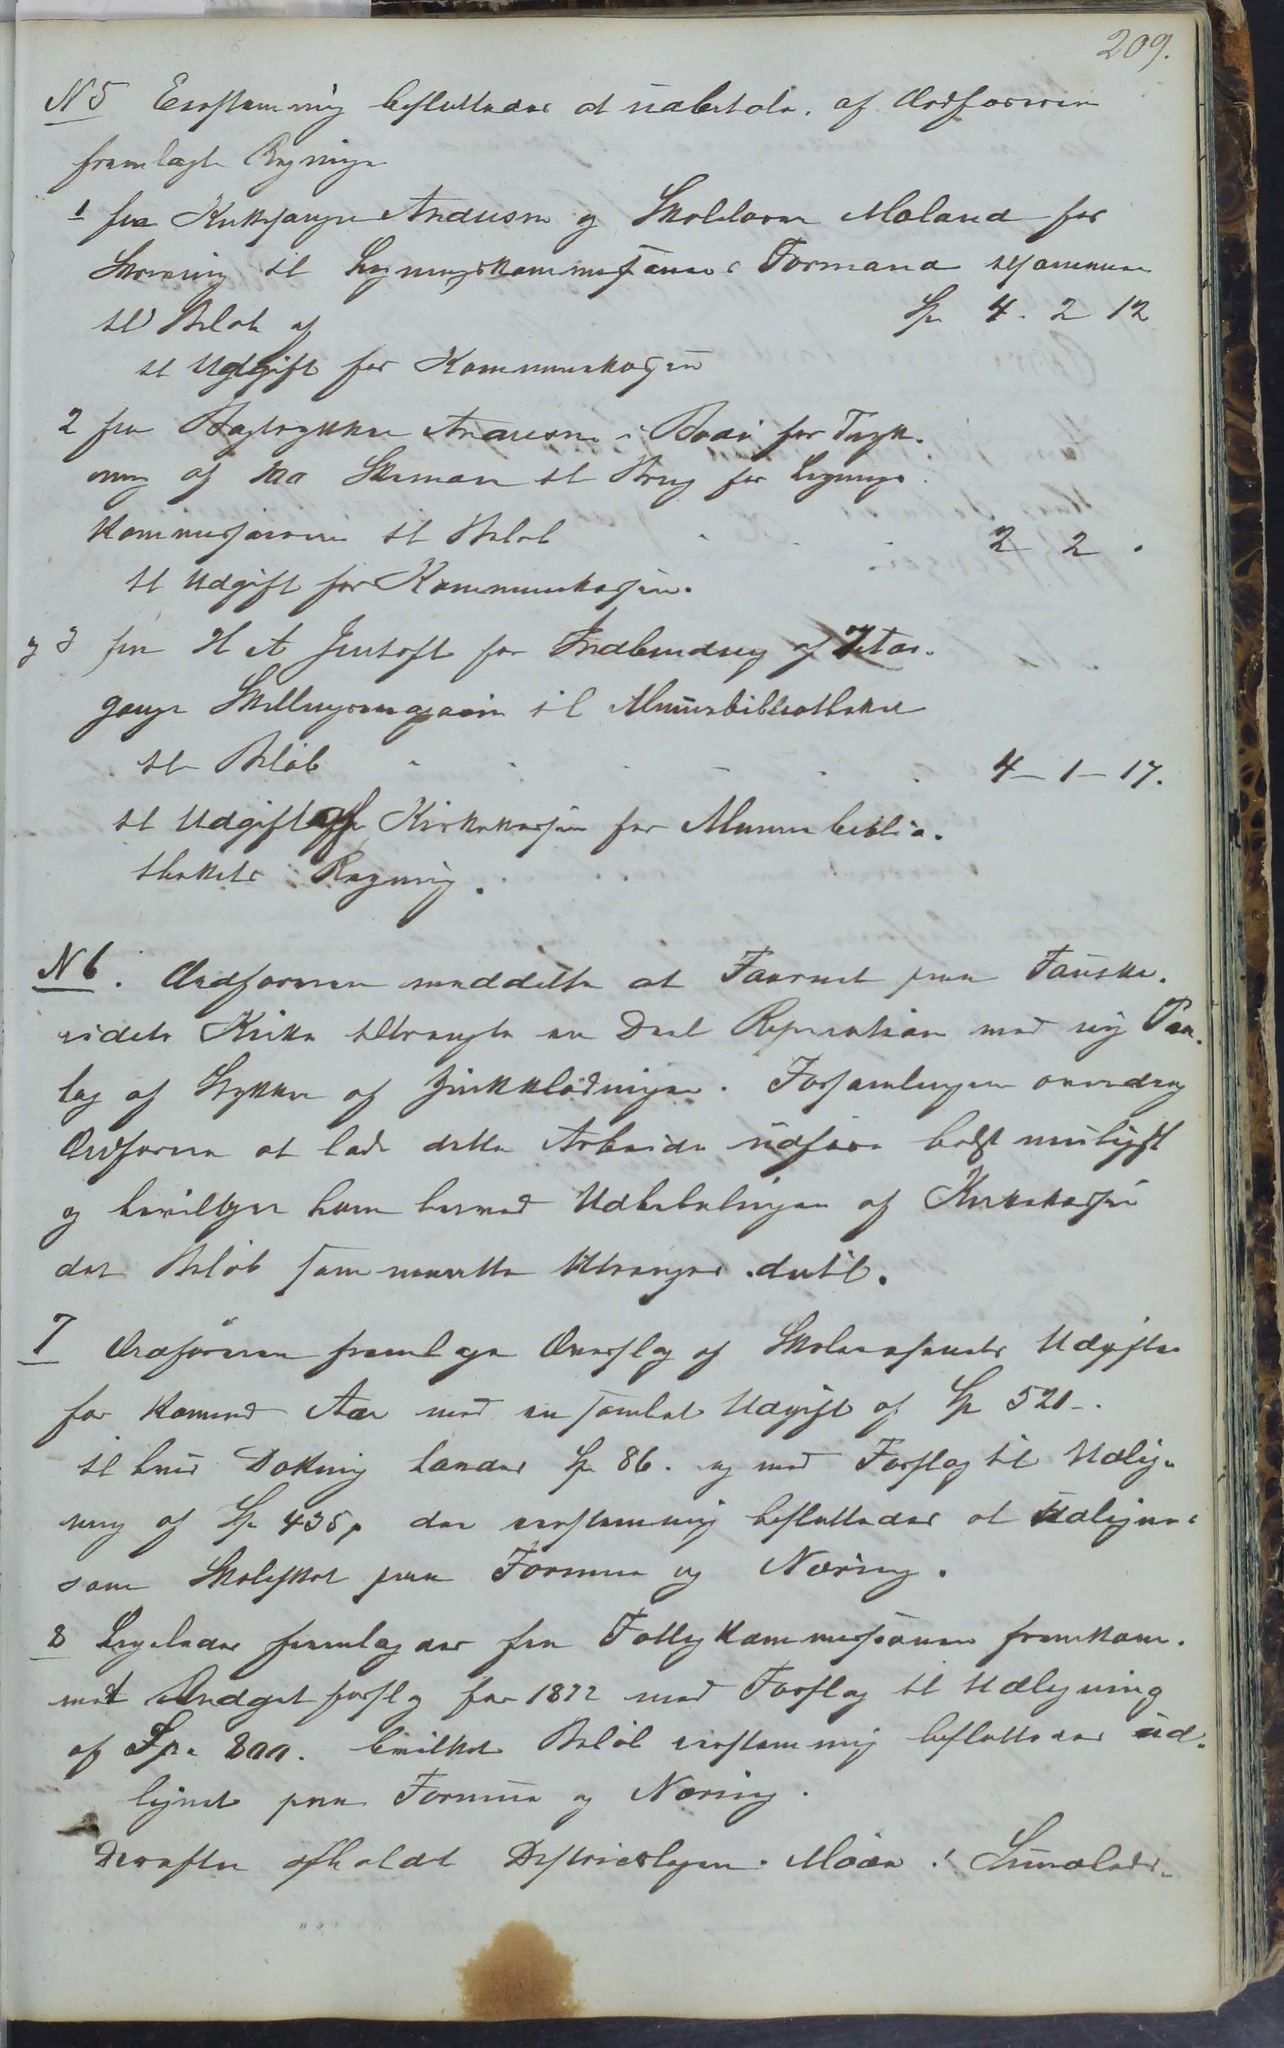 209.
N 5 Eenstemmig besluttedes at udbetale af Ordføreren
fremlagte Regninger
1 fra Kirkesanger Andresen og Skolelærer Moland for
Skrivning til Ligningskommissionens Formænd tilsammen
til Beløb af Sp 4. 2 12
til Udgift for Kommunekassen
2 fra Bogtrykker Andresen i Bodø for Tryk-
ning af Skemaer til Brug for Lignings
Kommissionen til Beløb 2 2 .
til Udgift for Kommunekassen.
og 3 fra H A Jentoft for Indbinding af Aar-
gange Skillingsmagasin til Almuebibliotheket
til Beløb 4 - 1 - 17.
til Udgift af Kirkekassen for Almuebiblio-
thekets Regning.
N 6. Ordføreren meddelte at Taarnet paa Fauske-
eidets Kirke tiltrængte en Deel Reparation med ny Paa-
lag af Stykker af Zinkklædningen. Forsamlingen overdrog
Ordføreren at lade dette Arbeide udføre bedst muligst
og bevilger ham herved Udbetalingen af Kirkekassen
det Beløb som maatte tiltrænges dertil.
7 Ordføreren fremlagde Overslag af Skolevæsenets Udgifter
for kommende Aar med en samlet Udgift af Sp 521 -.
til hvis Dækning havdes Sp 86. og med Forslag til Udlig-
ning af Sp 435, der eenstemmig besluttedes at udlignes
som Skoleskat paa Formue og Næring.
8 Ligeledes fremlagdes fra Fattigkommissionen fremkom-
met Budgetforslag for 1872 med Forslag til Udligning
af Sp. 800. hvilket Beløb eenstemmig besluttedes ud-
lignet paa Formue og Næring.
Derefter afholdt Distriktslægen Møde i Sundheds-